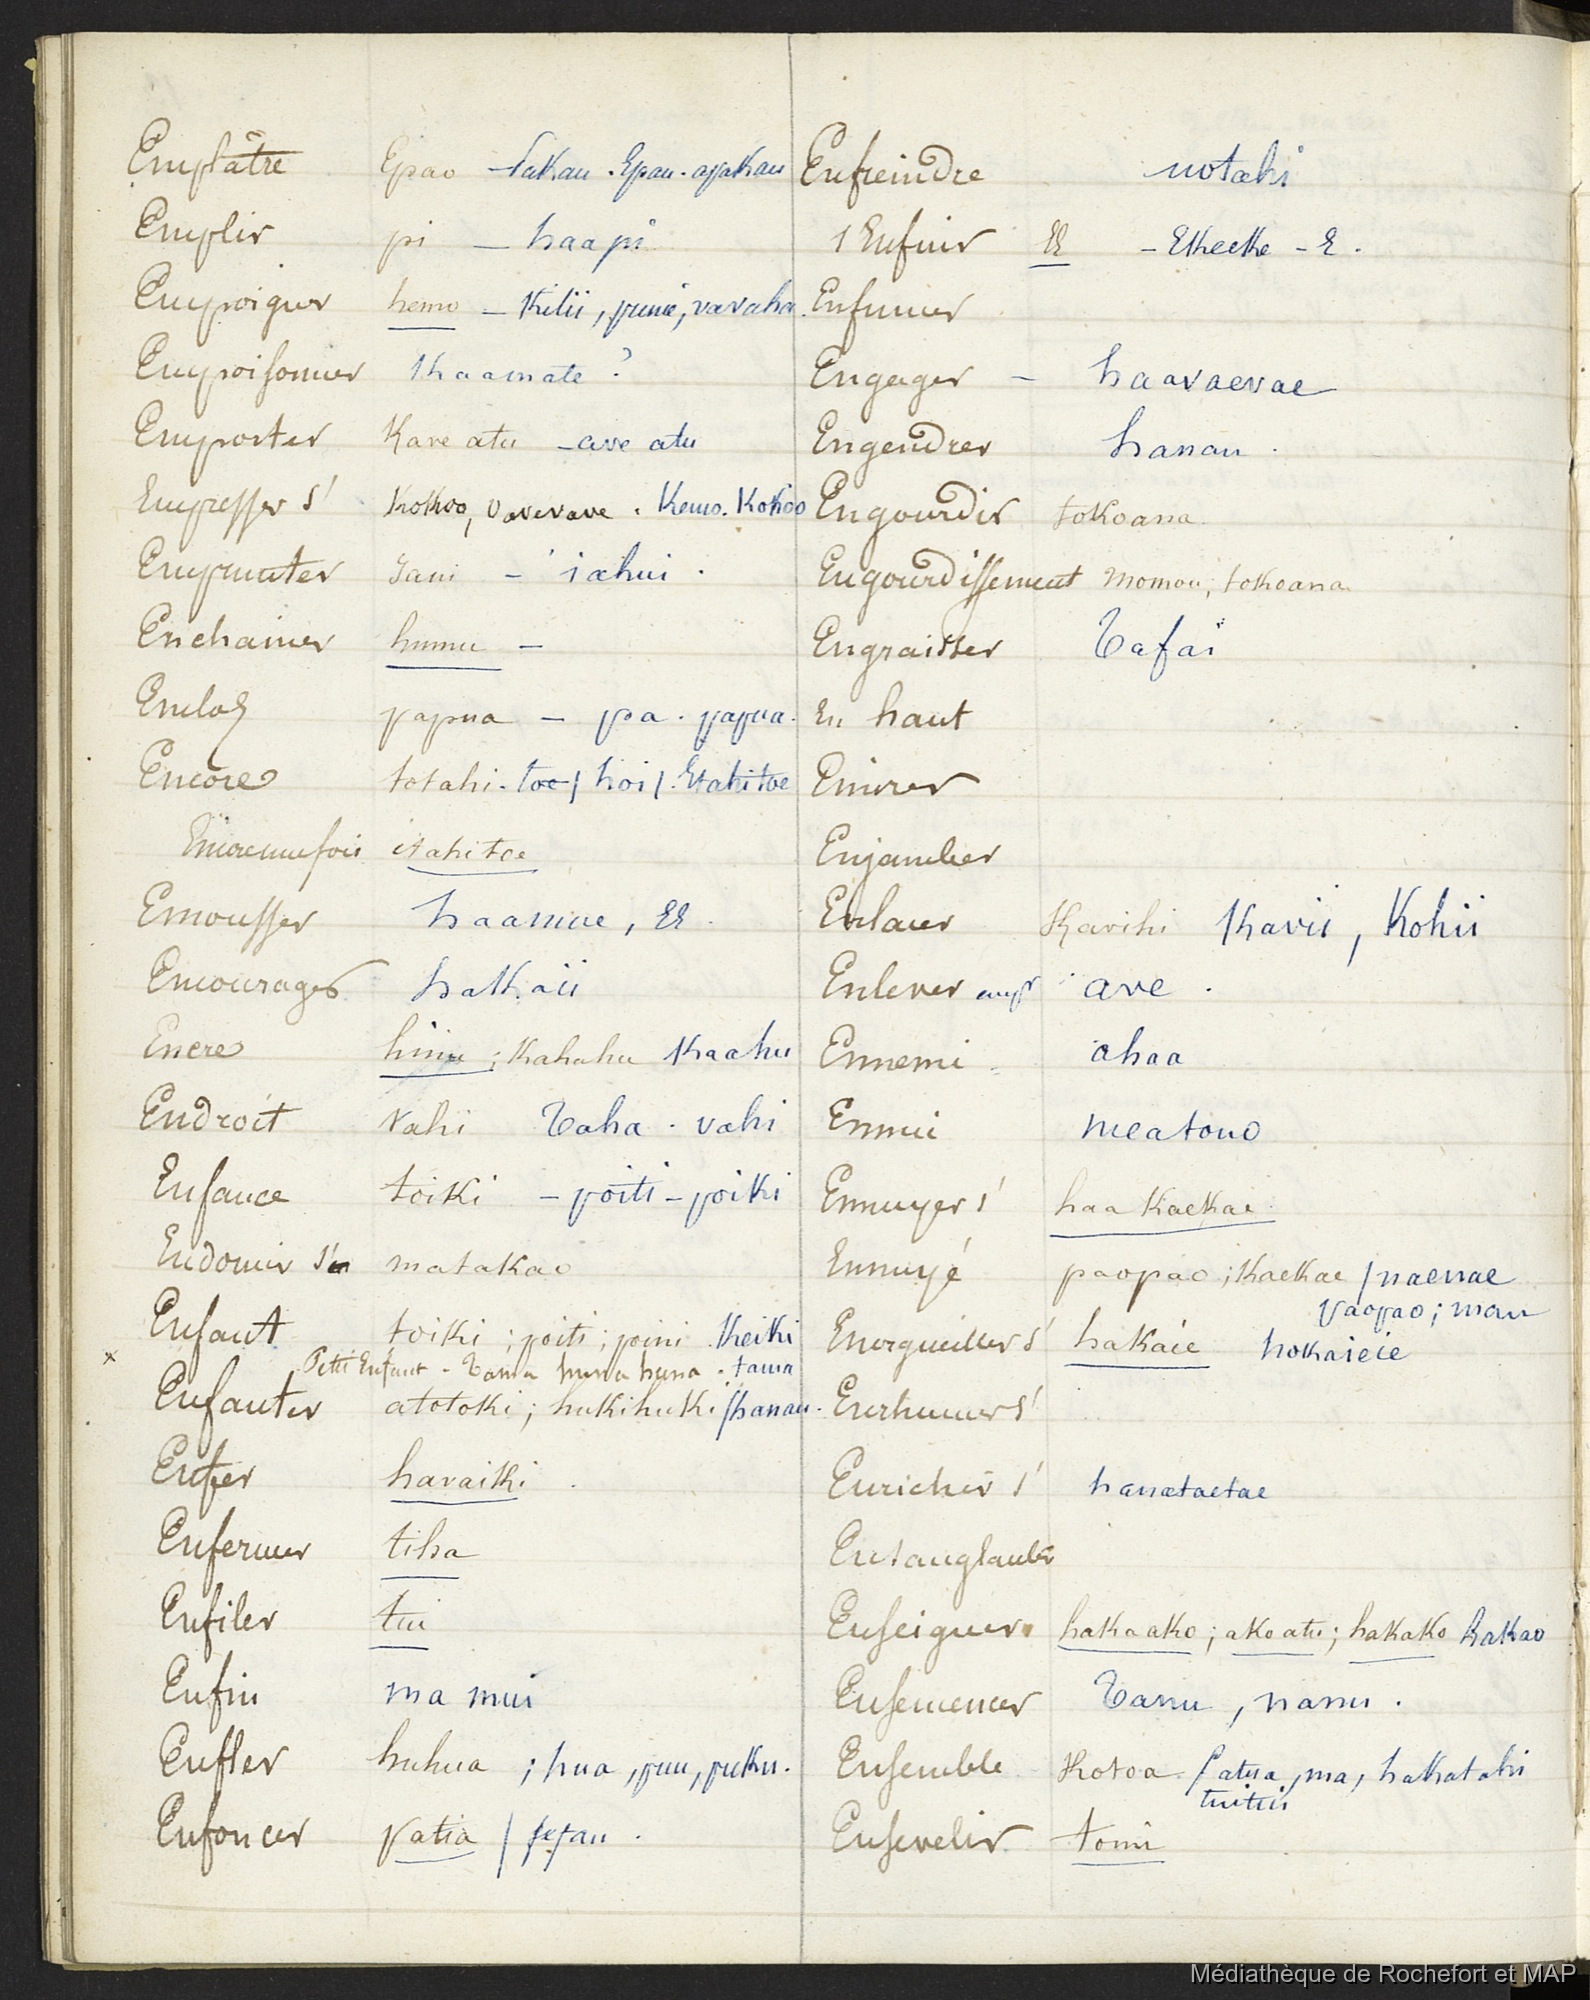 Emplâtre Epao - Epau. apakau
Emplir pi - haapi
Empoigner hemo - Kilii, pune, vavaha.
Empoisonner Khaamate ?
Emporter Kave atu - ave atu
Empresser s' Kokoo, vavevave. Kemo. Kokoo
Emprunter - iahui.
Enchainer humu -
Enclos papua - pa. papua.
Encore totahi. toe / hoi /. Etahitoe
Encore une fois etahitoe
Emousser haamue, EE.
Encourager hakaii
Encre hinu ; Kahahu Kaahu
Endroit Vahi Taha. vahi
Enfance toiki - poiti - poiki
Endormir s'en matakao
Enfant toiki ; poiti ; poini Keiki
x Petit Enfant - Tama huna huna. tama
Enfanter atotoki ; hukihuki / hanau.
Enfer havaiki.
Enfermer tiha
Enfiler tui
Enfin ma mui
Enfler huhua ; hua, puu, puku.
Enfoncer patia / pepau.
Enfreindre notahi
s'Enfuir EE - EKeeKe - E.
Enfumer
Engager - haavaevae
Engendrer hanau.
Engourdir tokoana.
Engourdissement momou ; tokoana
Engraisser Tafai
En haut
Enivrer
Enjamber
Enlacer Kavihi Kavii, Kohii
Enlever ave.
Ennemi ahaa
Ennui meatono
Ennuyer s' haa Kaekae
Ennuyé paopao ; Kaekae / naenae
paopao ; mau
Enorgueillir s' hakaíe hokaieie
Enrhumer s'
Enrichir s' hanataetae
Ensanglanter
Enseigner hakaako ; ako atu ; hakako hakao
Ensemencer Tanu, nanu.
Ensemble Kotoa. / atua, ma, hakatahi
tuitui
Ensevelir tomi
Médiathèque de Rochefort et MAP